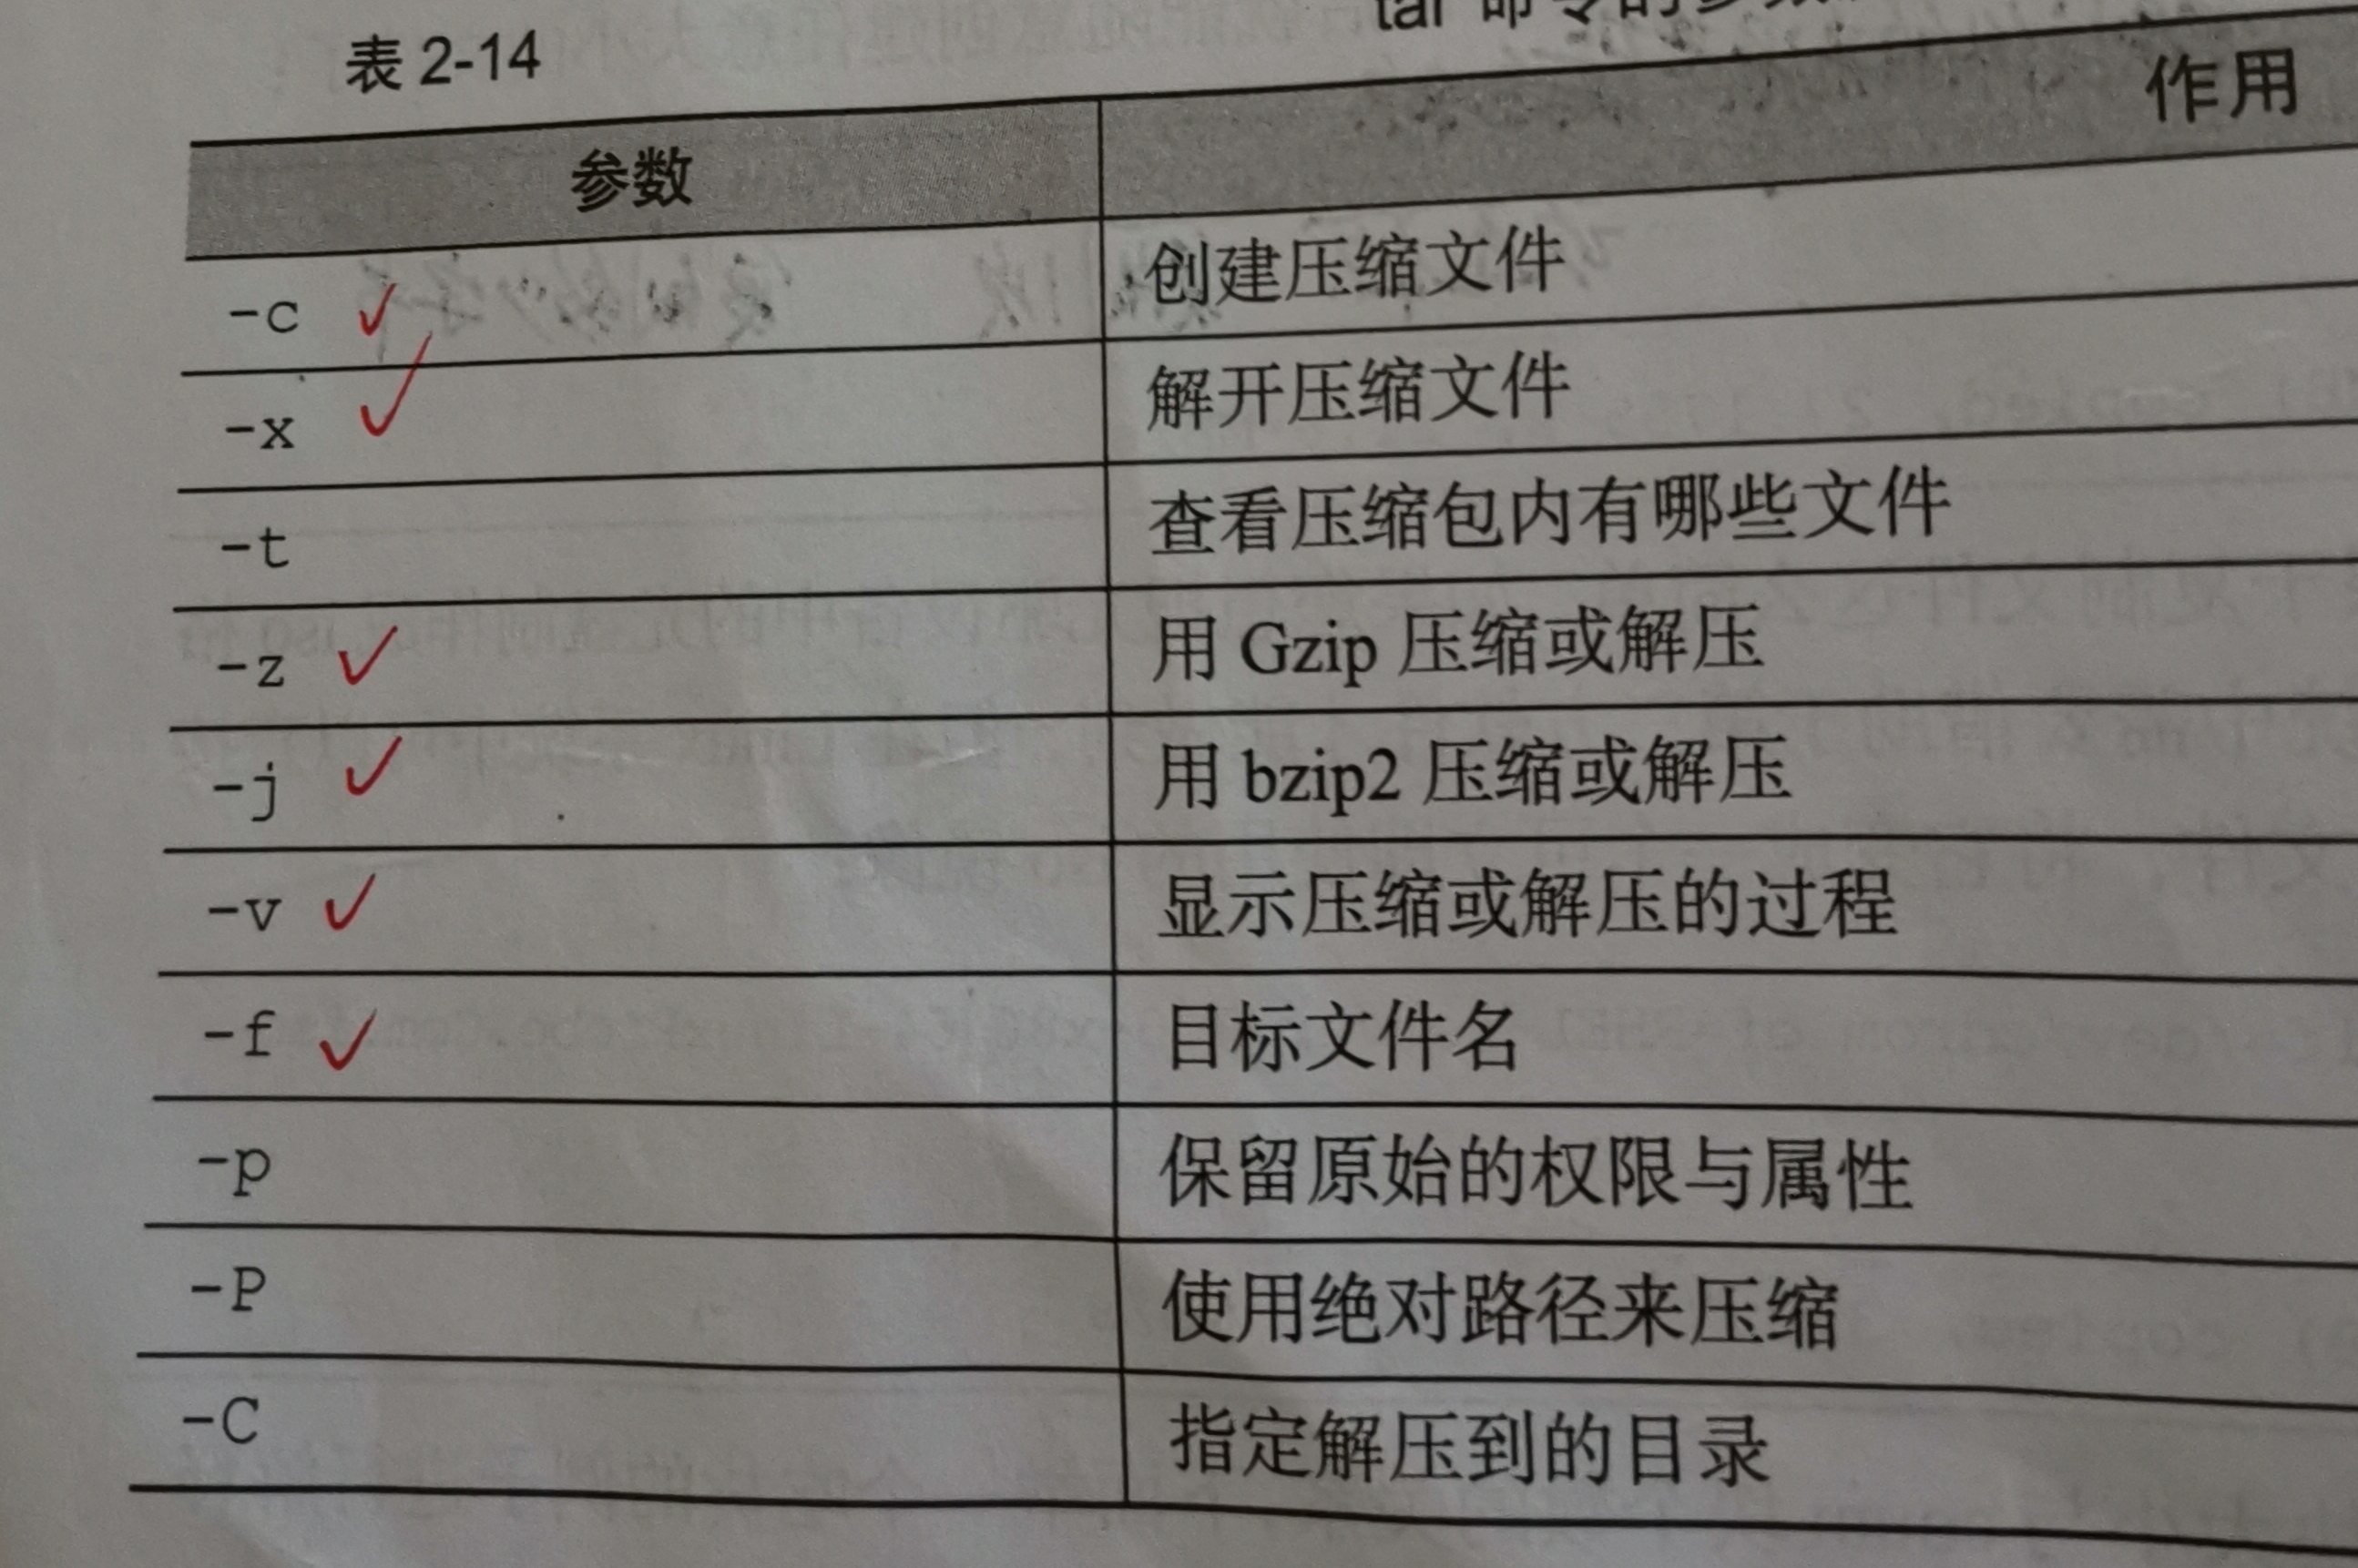 表 2-14
tar 命令的参数
参数 作用
-c 创建压缩文件
-x 解开压缩文件
-t 查看压缩包内有哪些文件
-z 用 Gzip 压缩或解压
-j 用 bzip2 压缩或解压
-v 显示压缩或解压的过程
-f 目标文件名
-p 保留原始的权限与属性
-P 使用绝对路径来压缩
-C 指定解压到的目录